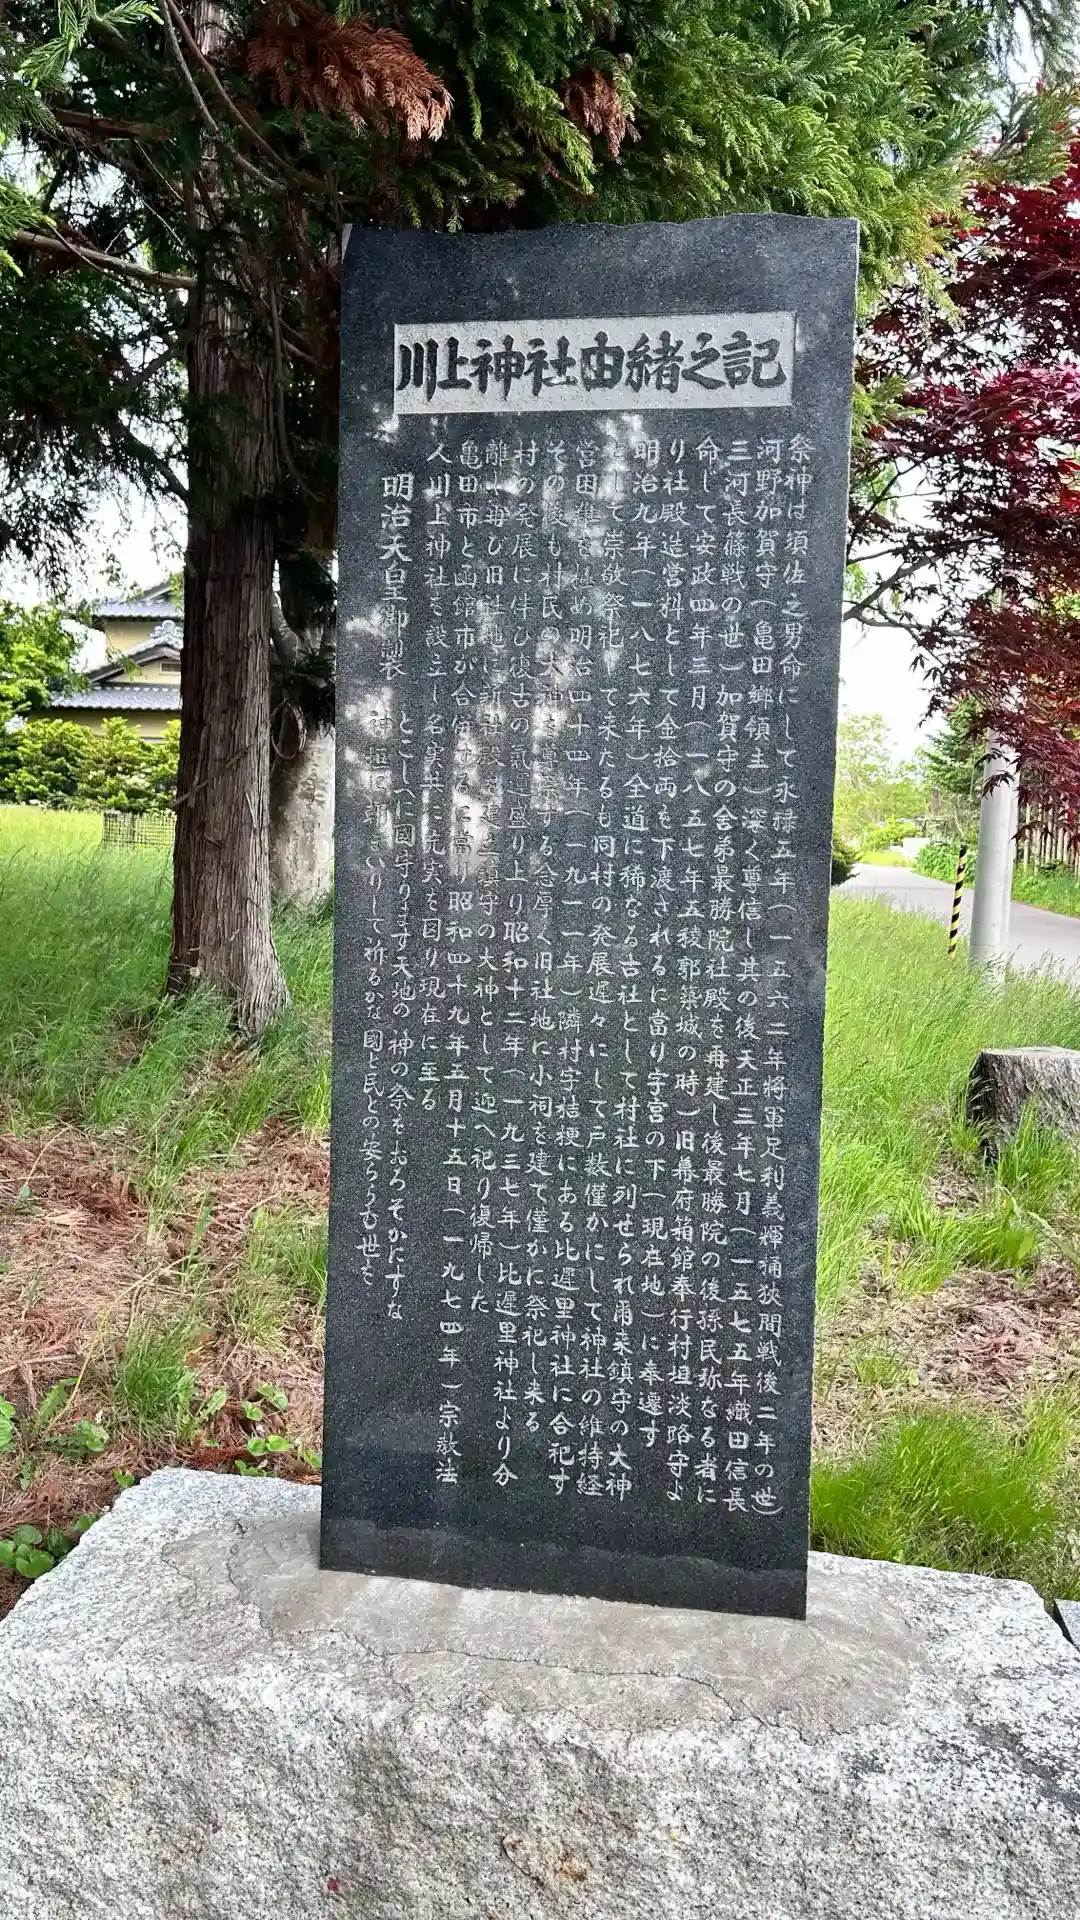 川上神社由緒之記
祭神は須佐之男命にして永禄五年(一五六二年将軍足利義輝桶狭間戦後二年の世)
河野加賀守(亀田郷領主)深く尊信し其の後天正三年七月(一五七五年織田信長
三河長篠戦の世)加賀守の舎弟最勝院社殿を再建し後最勝院の後孫民弥なる者に
命じて安政四年三月(一八五七年五稜郭築城の時)旧幕府箱館奉行村垣淡路守よ
り社殿造営料として金拾両を下渡されるに當り字宮の下(現在地)に奉遷す
明治九年(一八七六年)全道に稀なる古社として村社に列せられ爾来鎮守の大神
として崇敬祭祀して来たるも同村の発展遅々にして戸数僅かにして神社の維持経
営困難を極め明治四十四年(一九一一年)隣村字桔梗にある比遅里神社に合祀す
その後も村民の大神を尊崇する念厚く旧社地に小祠を建て僅かに祭祀し来る
村の発展に伴ひ復古の氣運盛り上り昭和十二年(一九三七年)比遅里神社より分
離し再び旧社地に新社殿を建立鎮守の大神として迎へ祀り復帰した
亀田市と函館市が合併するに當り昭和四十九年五月十五日(一九七四年)宗教法
人川上神社を設立し名実共に充実を図り現在に至る
明治天皇御製
とこしへに國守ります天地の神の祭をおろそかにすな
神垣に朝まいりして祈るかな國と民との安らうむ世を